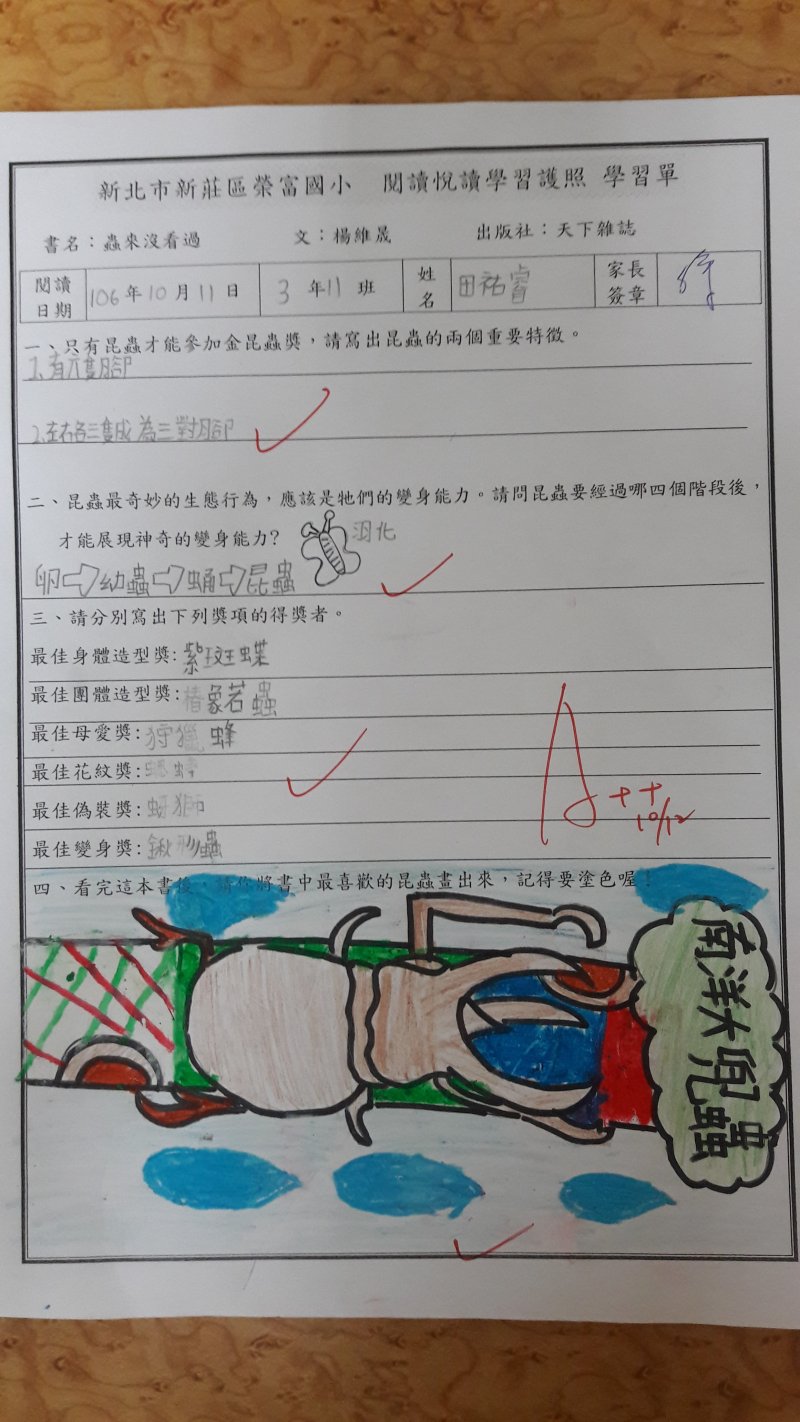 新北市新莊區榮富國小 閱讀悅讀學習護照 學習單
書名：蟲來沒看過 文：楊維晟 出版社：天下雜誌
閱讀日期 106年10月11日 3年11班 姓名 田祐睿 家長簽章
一、只有昆蟲才能參加金昆蟲獎，請寫出昆蟲的兩個重要特徵。
1.有六隻腳
2.左右各三隻成為三對腳
二、昆蟲最奇妙的生態行為，應該是牠們的變身能力。請問昆蟲要經過哪四個階段後，
才能展現神奇的變身能力? 羽化
卵⇨幼蟲⇨蛹⇨昆蟲
三、請分別寫出下列獎項的得獎者。
最佳身體造型獎:紫斑蝶
最佳團體造型獎:椿象若蟲
最佳母愛獎:狩獵蜂
最佳花紋獎:
最佳偽裝獎:蚜獅
最佳變身獎:鍬形蟲
A++
10/12
四、看完這本書後，請你將書中最喜歡的昆蟲畫出來，記得要塗色喔！
南洋大兜蟲